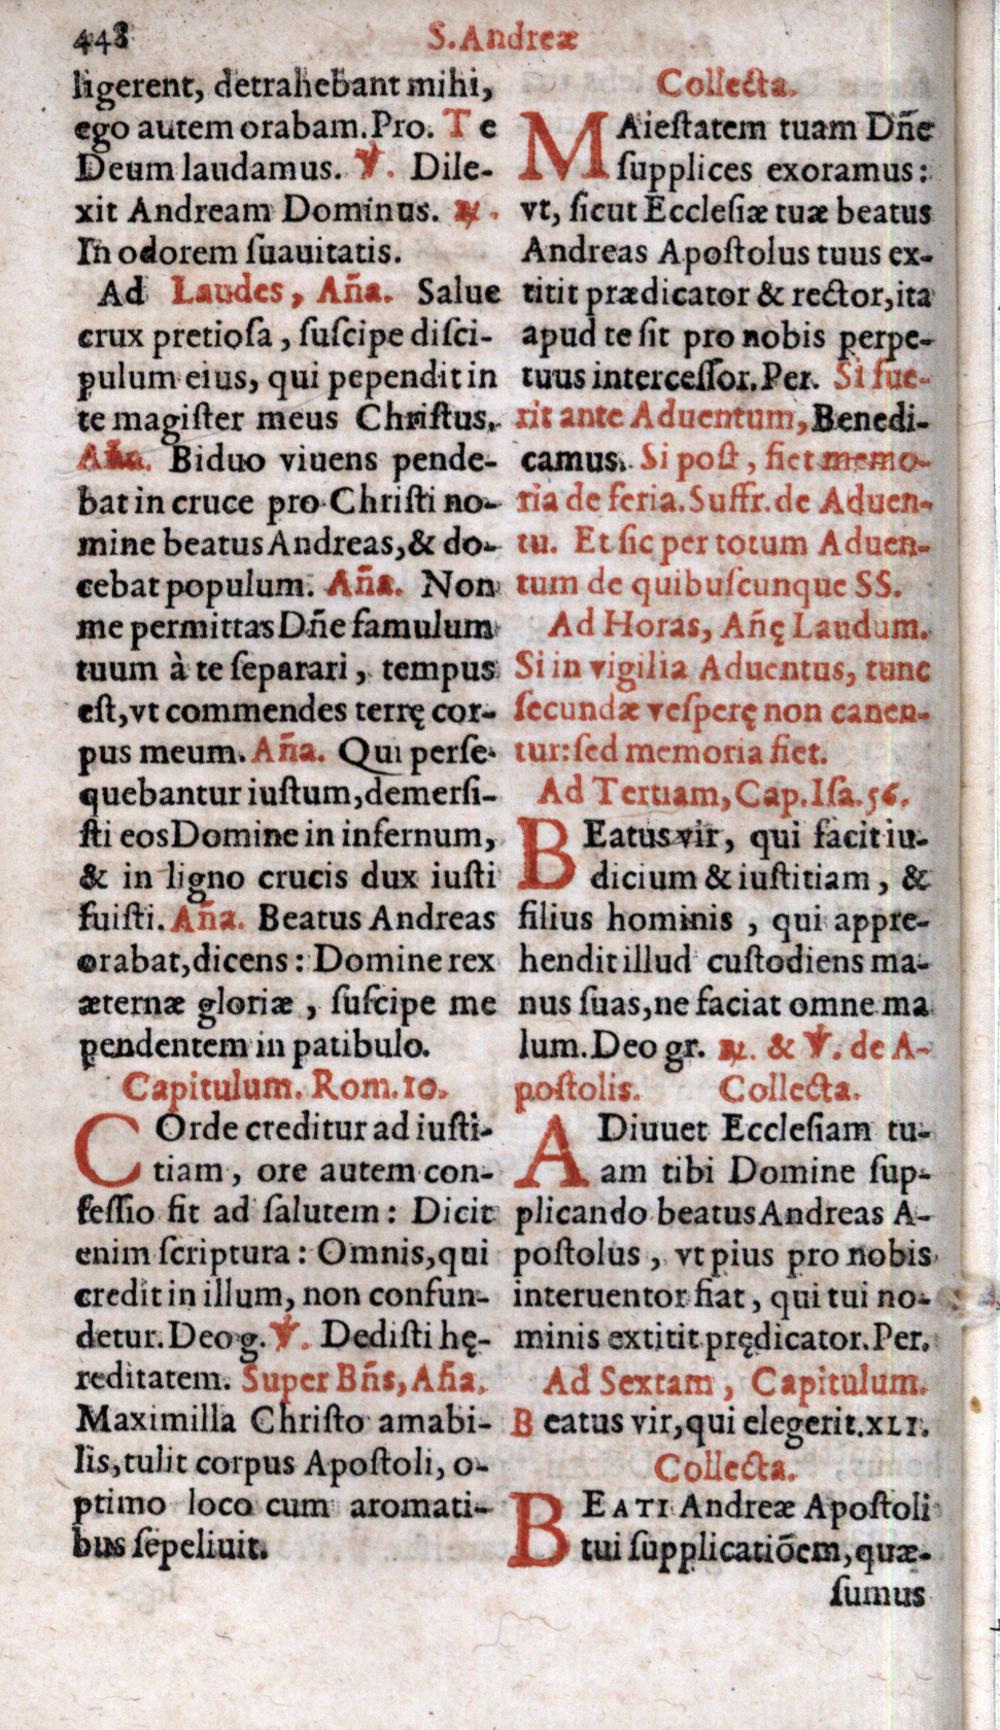 448 S. Andreæ
ligerent, detrahebant mihi,
ego autem orabam. Pro. Te
Deum laudamus. ℣. Dile-
xit Andream Dominus. ℟.
In odorem ſuauitatis.
Ad Laudes, Aña. Salue
crux pretioſa, ſuſcipe diſci-
pulum eius, qui pependit in
te magiſter meus Chriſtus.
Aña. Biduo viuens pende-
bat in cruce pro Chriſti no-
mine beatus Andreas, & do-
cebat populum. Aña. Non
me permittas Dñe famulum
tuum à te ſeparari, tempus
eſt, vt commendes terrę cor-
pus meum. Aña. Qui perſe-
quebantur iuſtum, demerſi-
ſti eos Domine in infernum,
& in ligno crucis dux iuſti
fuiſti. Aña. Beatus Andreas
orabat, dicens: Domine rex
æternæ gloriæ, ſuſcipe me
pendentem in patibulo.
Capitulum. Rom. 10.
COrde creditur ad iuſti-
tiam, ore autem con-
feſſio fit ad ſalutem: Dicit
enim ſcriptura: Omnis, qui
credit in illum, non confun-
detur. Deo g. ℣. Dediſti hę-
reditatem. Super Bñs, Aña.
Maximilla Chriſto amabi-
lis, tulit corpus Apoſtoli, o-
ptimo loco cum aromati-
bus ſepeliuit.
Collecta.
MAieſtatem tuam Dñe
ſupplices exoramus:
vt, ſicut Eccleſiæ tuæ beatus
Andreas Apoſtolus tuus ex-
titit prædicator & rector, ita
apud te ſit pro nobis perpe-
tuus interceſſor. Per. Si fue-
rit ante Aduentum, Benedi-
camus. Si poſt, fiet memo-
ria de feria. Suffr. de Aduen-
tu. Et ſic per totum Aduen-
tum de quibuſcunque SS.
Ad Horas, Añę Laudum.
Si in vigilia Aduentus, tunc
ſecundæ veſperę non canen-
tur: ſed memoria fiet.
Ad Tertiam, Cap. Iſa. 56.
BEatus vir, qui facit iu-
dicium & iuſtitiam, &
filius hominis, qui appre-
hendit illud cuſtodiens ma-
nus ſuas, ne faciat omne ma
lum. Deo gr. ℟. & ℣. de A-
poſtolis. Collecta.
ADiuuet Eccleſiam tu-
am tibi Domine ſup-
plicando beatus Andreas A-
poſtolus, vt pius pro nobis
interuentor fiat, qui tui no-
minis extitit prędicator. Per.
Ad Sextam, Capitulum.
Beatus vir, qui elegerit. XLI.
Collecta.
BEATI Andreæ Apoſtoli
tui ſupplicatiōem, quæ-
ſumus